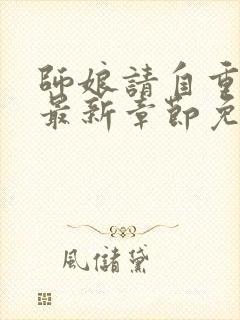 師娘請自重
最新章節免
風儲黛